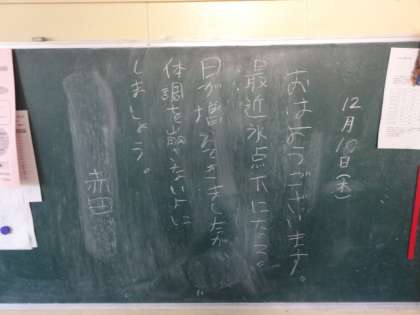 12月10日(木)
おはようございます。
最近氷点下になる。
日が増えてきましたが、
体調を崩さないように
しましょう。
赤田